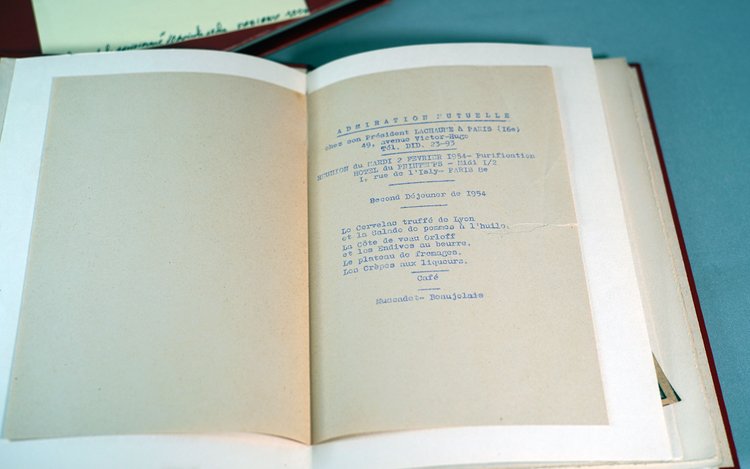 ADMIRATION MUTUELLE
chez son Président LACHAUME à PARIS (16e)
49, avenue Victor-Hugo
Tél. DID. 23-93
REUNION du MARDI 2 FEVRIER 1954- Purification
HOTEL du PRINTEMPS - Midi 1/2
1, rue de l'Isly- PARIS 8e
Second Déjeuner de 1954
Le Cervelas truffé de Lyon
et la Salade de pommes à l'huile.
La Côte de veau Orloff
et les Endives au beurre.
Le plateau de fromages.
Les Crèpes aux liqueurs.
Café
Muscadet- Beaujolais